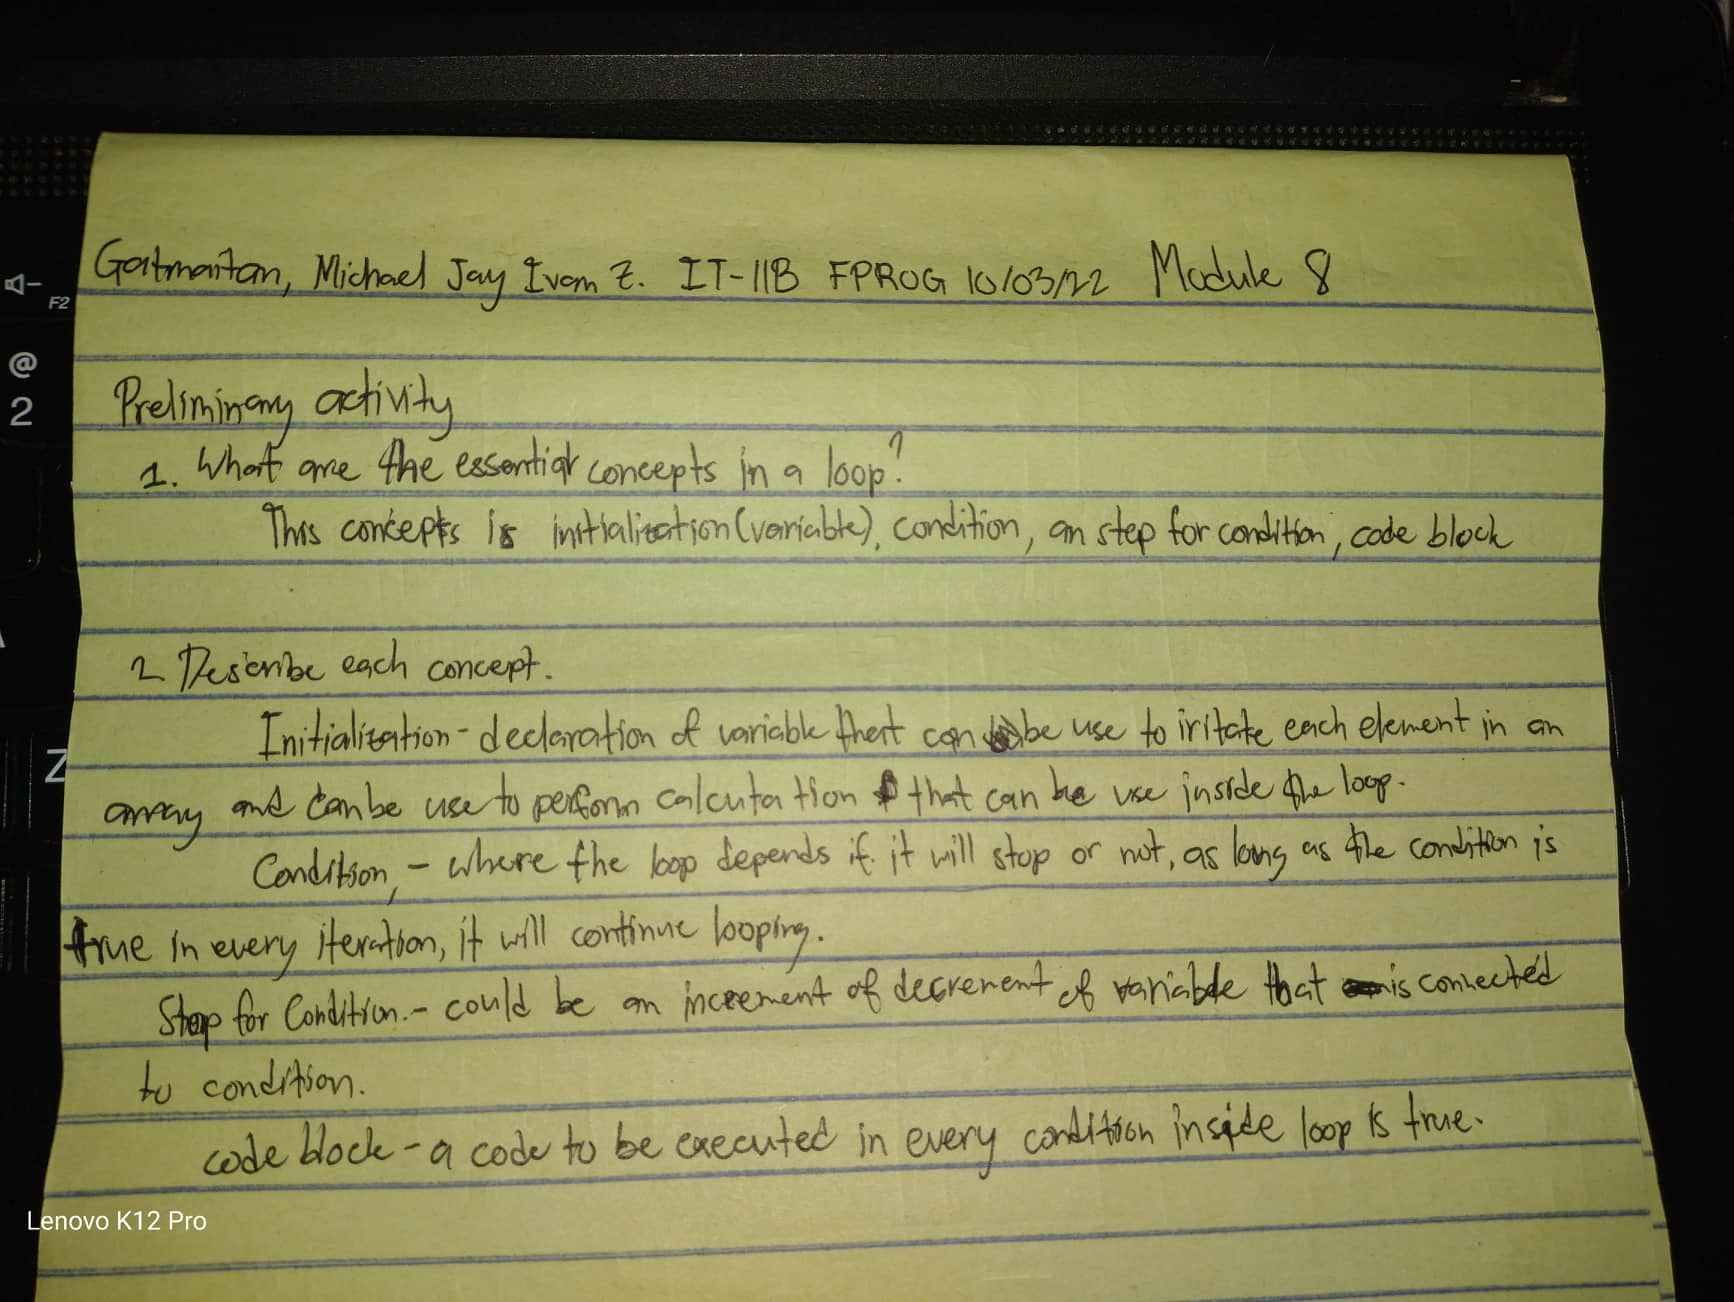 Gatmaitan, Michael Jay Ivan Z. IT-11B FPROG 10/03/22 Module 8
F2
@
2
Preliminary activity
1. What are the essential concepts in a loop?
This concepts is initialization (variable), condition, an step for condition, code block
2 Describe each concept.
Z
Initialization - declaration of variable that can be use to iritate each element in an
array and can be use to perform calculation that can be use inside the loop.
Condition, - where the loop depends if it will stop or not, as long as the condition is
true in every iteration, it will continue looping.
Step for Condition. - could be an increment of decrement of variable that is connected
to condition.
code block - a code to be executed in every condition inside loop is true.
Lenovo K12 Pro